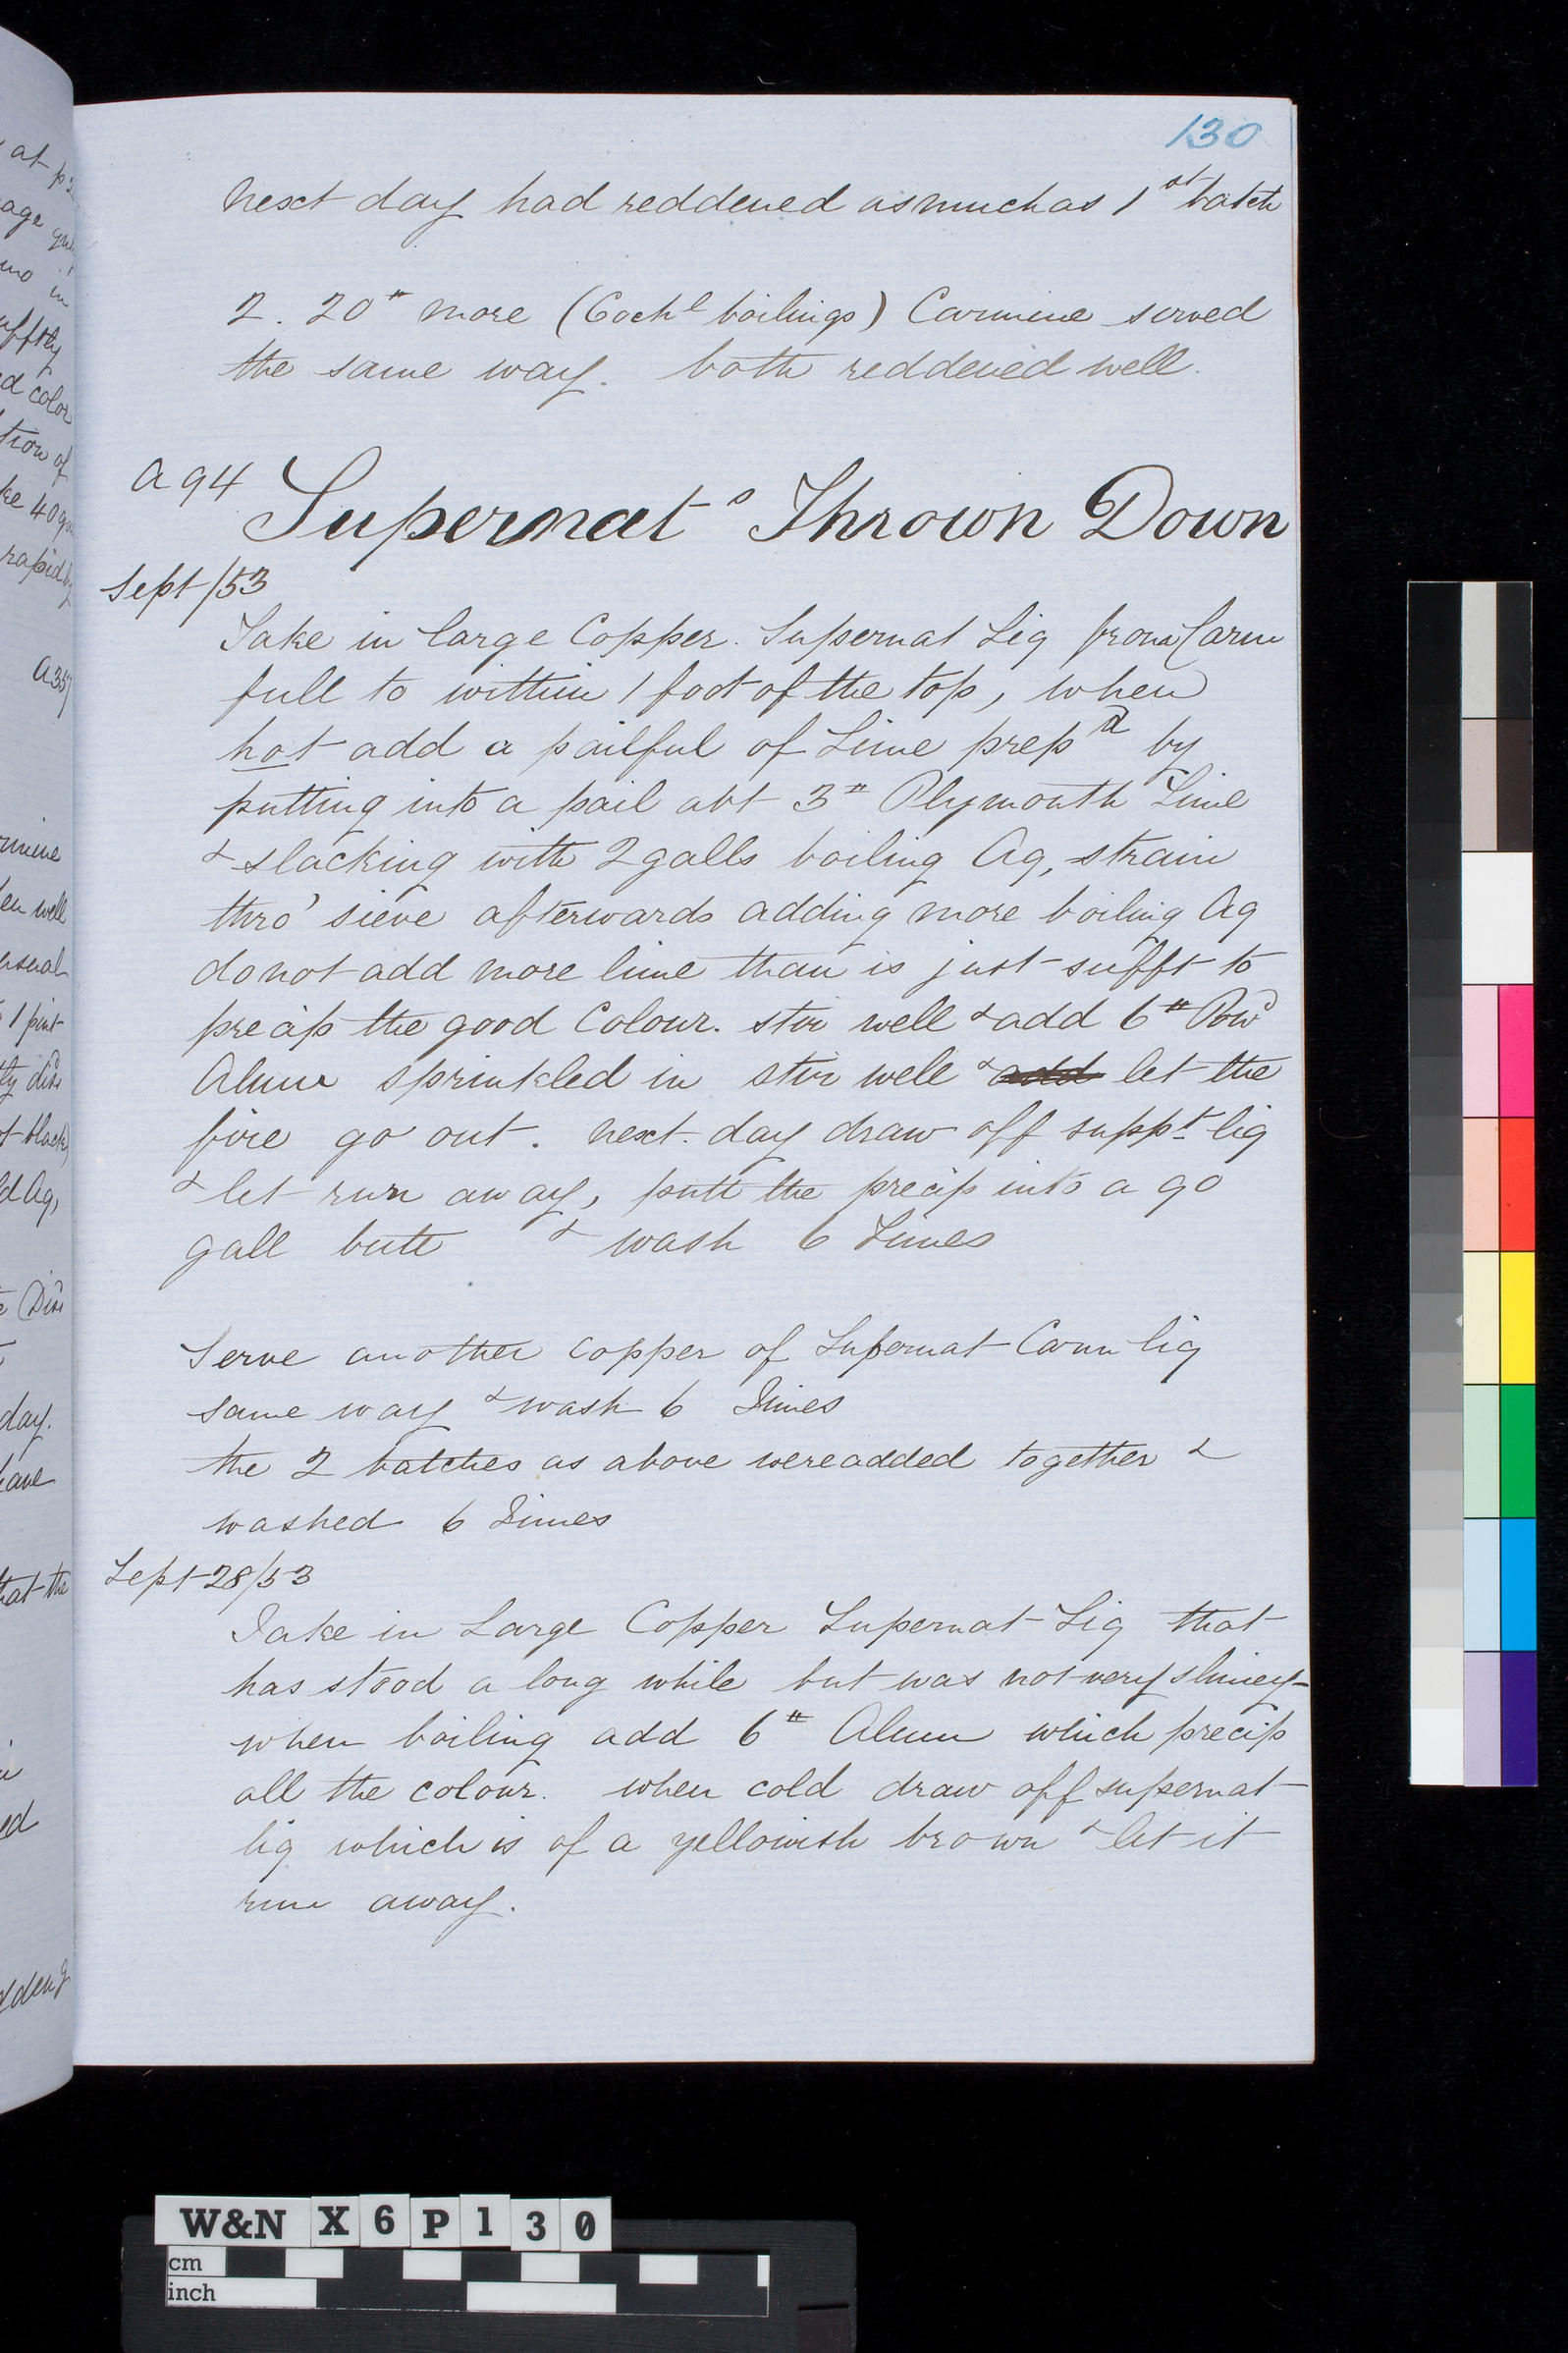 130
next day had reddened as much as 1st batch
2. 20# more (Cochl boilings) Carmine served
the same way. both reddened well.
a 94 Supernats Thrown Down
Sept/53
Take in large Copper. Supernat Liq from Carm
full to within 1 foot of the top, when
hot add a pailful of Lime prepd by
putting into a pail abt 3# Plymouth Lime
& slacking with 2 galls boiling Aq, strain
thro' sieve afterwards adding more boiling Aq
do not add more lime than is just sufft to
precip the good Colour. stir well & add 6# Powd
Alum sprinkled in stir well & add let the
fire go out. next day draw off suppt liq
& let run away, putt the precip into a 90
gall butt & wash 6 Times
Serve another copper of Supernat Carm liq
same way & wash 6 Times
the 2 batches as above were added together &
washed 6 Times
Sept 28/53
Take in Large Copper Supernat Liq that
has stood a long while but was not very slimey
when boiling add 6# Alum which precip
all the colour. when cold draw off supernat
liq which is of a yellowish brown & let it
run away.
at p
age
in
d color
tion of
ke 40
rapidly
a 35
en well
usual
1 pint
day.
have
that the
W&N X6P130
cm
inch